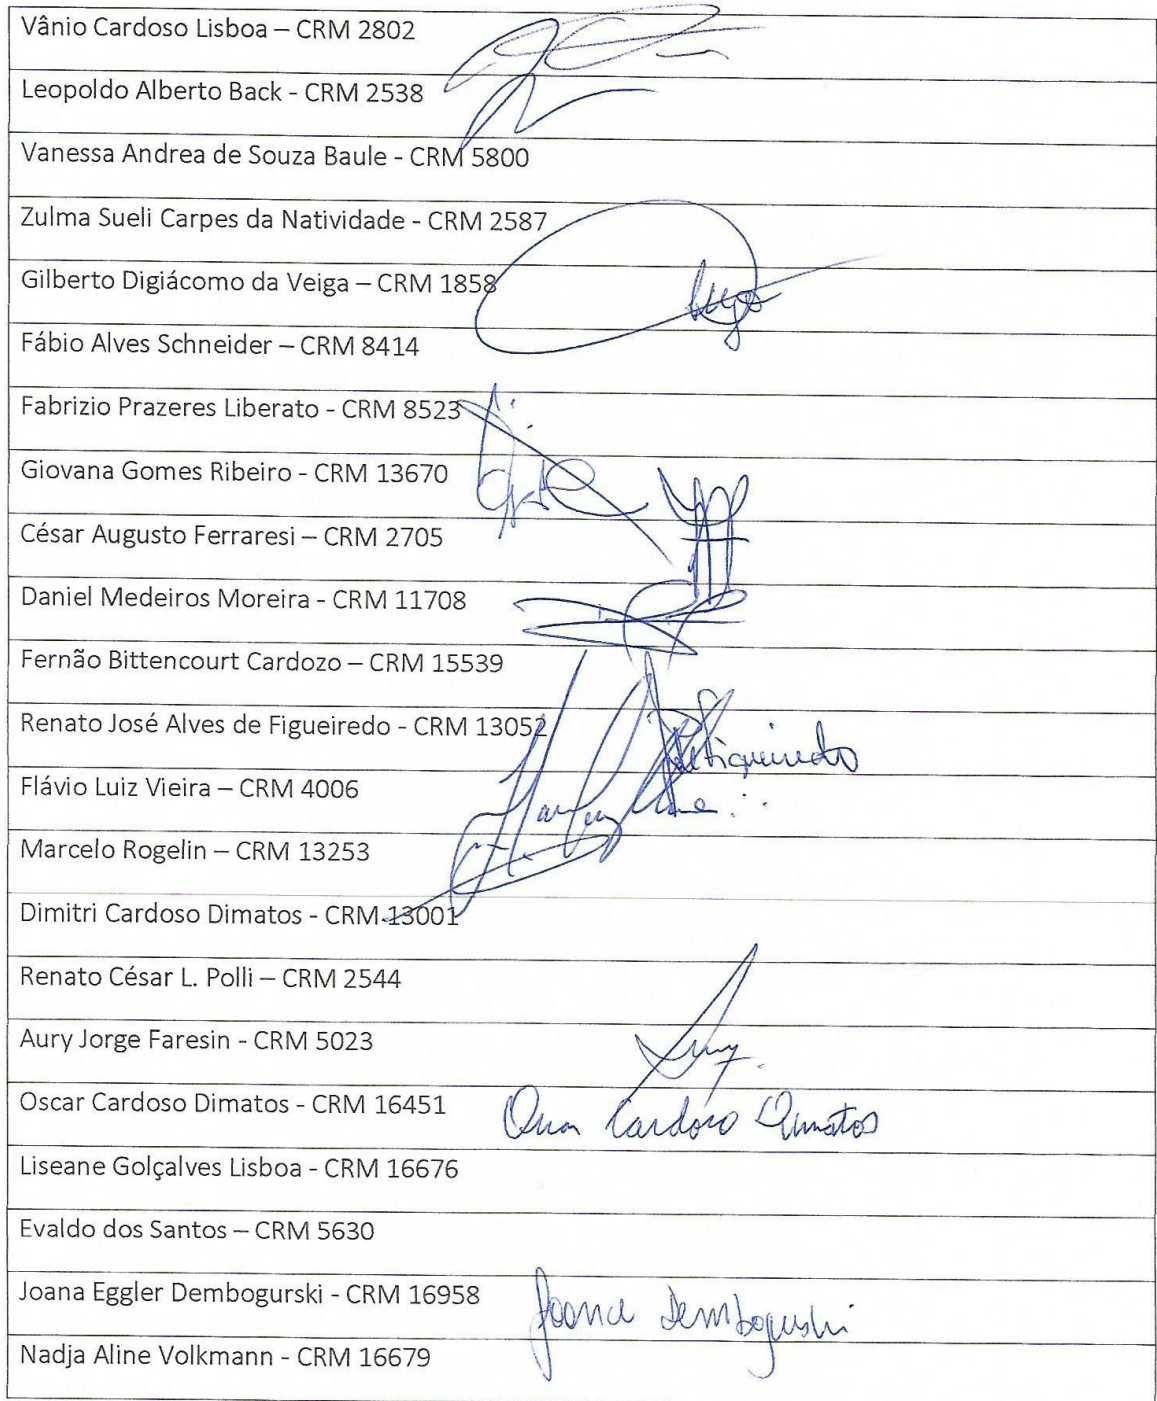 Vânio Cardoso Lisboa – CRM 2802
Leopoldo Alberto Back - CRM 2538
Vanessa Andrea de Souza Baule - CRM 5800
Zulma Sueli Carpes da Natividade - CRM 2587
Gilberto Digiácomo da Veiga – CRM 1858
Fábio Alves Schneider – CRM 8414
Fabrizio Prazeres Liberato - CRM 8523
Giovana Gomes Ribeiro - CRM 13670
César Augusto Ferraresi – CRM 2705
Daniel Medeiros Moreira - CRM 11708
Fernão Bittencourt Cardozo – CRM 15539
Renato José Alves de Figueiredo - CRM 13052
Flávio Luiz Vieira – CRM 4006
Marcelo Rogelin – CRM 13253
Dimitri Cardoso Dimatos - CRM 13001
Renato César L. Polli – CRM 2544
Aury Jorge Faresin - CRM 5023
Oscar Cardoso Dimatos - CRM 16451 Cardoso Dimatos
Liseane Golçalves Lisboa - CRM 16676
Evaldo dos Santos – CRM 5630
Joana Eggler Dembogurski - CRM 16958 Joana Dembogurski
Nadja Aline Volkmann - CRM 16679